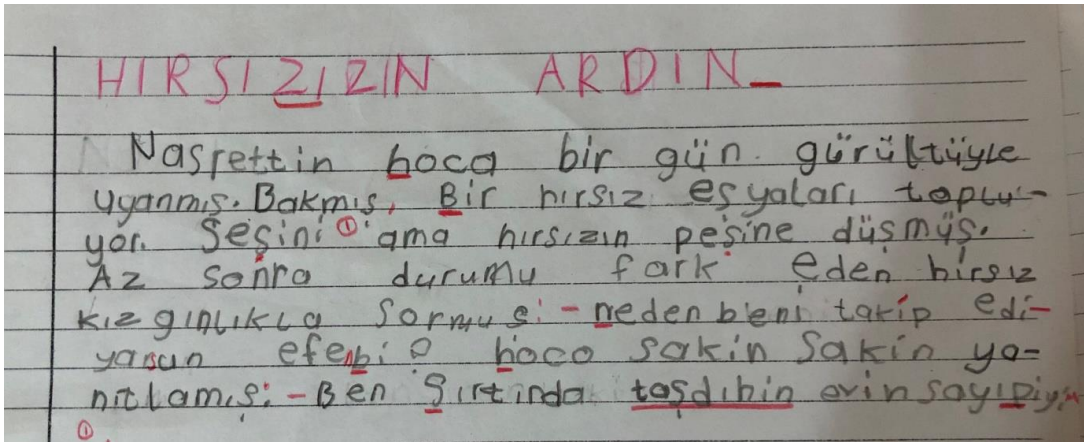 HIRSIZIZIN ARDIN_
Nasrettin hoca bir gün gürültüyle
uyanmış. Bakmış, Bir hırsız eşyaları toplu-
yor. Sesini ① ama hırsızın peşine düşmüş.
Az sonra durumu fark eden hirsiz
kızgınlıkla sormuş: - neden beni takip edi-
yorsun efenbi? hoca sakin sakin ya-
nıtlamış: - Ben Sırtında taşdıhin evin sayıpiyım
①